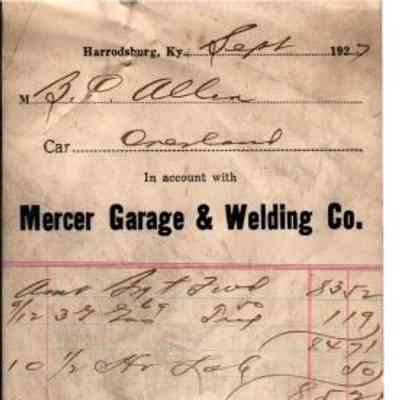 Harrodsburg, Ky., Sept 1927
M B. P. Allen
Car Overland
In account with
Mercer Garage & Welding Co.
Amt B't Fwd 83 52
9/12 3 G Gas 69 50 1 19
84 71
10 1/2 Hr Lab 50
85 2